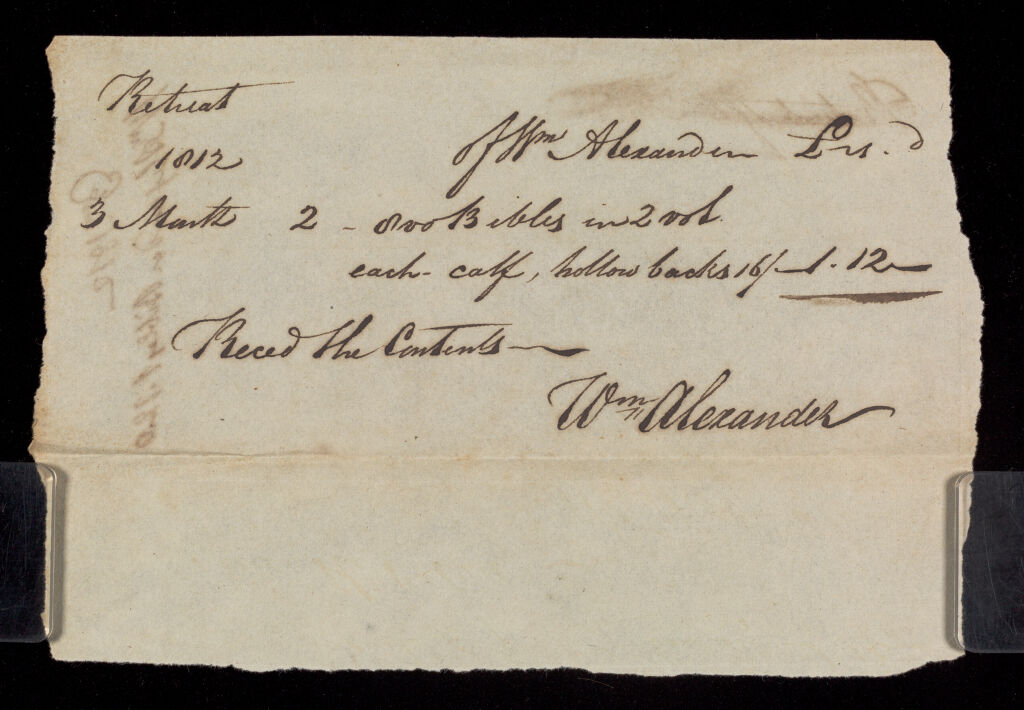 Retreat
1812 Of Wm Alexander L rs. d
3 Month 2 - 8vo Bibles in 2 vol.
each - calf, hollow backs 16/ - 1. 12 -
Reced the Contents -
Wm Alexander